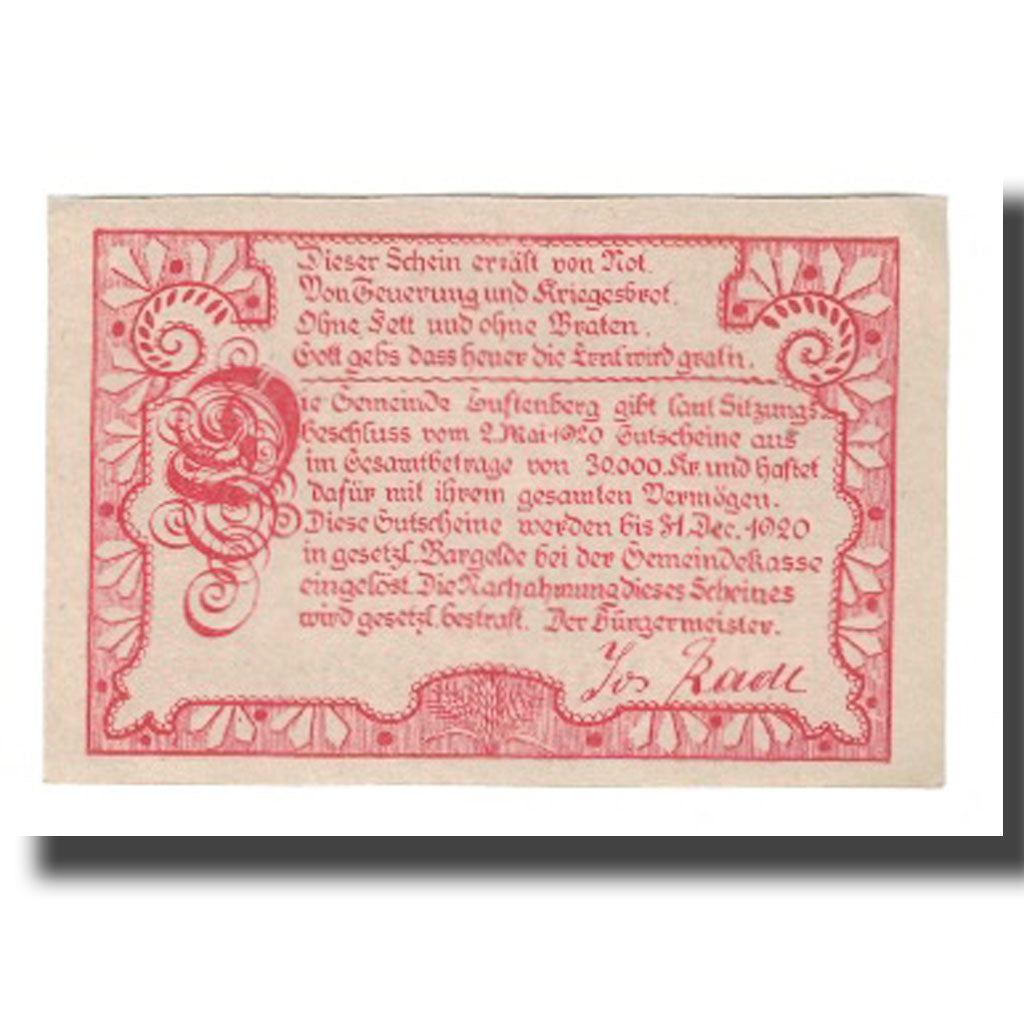 Dieser Schein erzält von Not.
Von Teuerung und Kriegesbrot.
Ohne Fett und ohne Braten.
Gott gebs dass heuer die Ernt wird gratn.
Die Gemeinde Luftenberg gibt laut Sitzungs-
beschluss vom 2. Mai 1920 Gutscheine aus
im Gesamtbetrage von 30.000. Kr und haftet
dafür mit ihrem gesamten Vermögen.
Diese Gutscheine werden bis 31. Dec. 1920
in gesetzl. Bargelde bei der Gemeindekasse
eingelöst. Die Nachahmung dieses Scheines
wird gesetzl. bestraft. Der Bürgermeister.
Jos